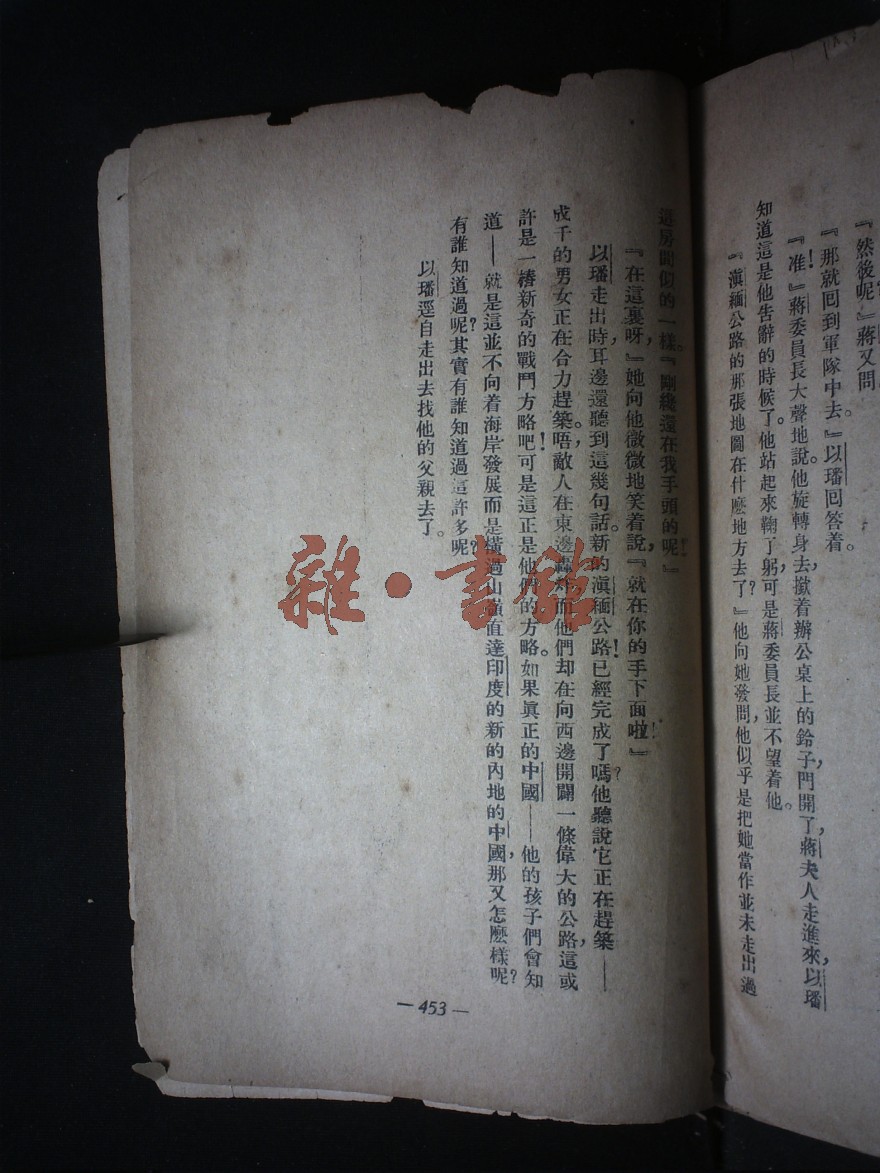 『然後呢？』蔣又問。
『那就回到軍隊中去。』以璠回答着。
『准！』蔣委員長大聲地說。他旋轉身去，撳着辦公桌上的鈴子，門開了，蔣夫人走進來，以璠
知道這是他告辭的時候了。他站起來鞠了躬，可是蔣委員長並不望着他。
『滇緬公路的那張地圖在什麼地方去了？』他向她發問，他似乎是把她當作並未走出過
這房間似的一樣。『剛纔還在我手頭的呢！』
『在這裏呀，』她向他微微地笑着說，『就在你的手下面啦！』
以璠走出時，耳邊還聽到這幾句話。新的滇緬公路！已經完成了嗎？他聽說它正在趕築——
成千的男女正在合力趕築。唔，敵人在東邊轟炸，而他們却在向西邊開闢一條偉大的公路，這或
許是一樁新奇的戰鬥方略吧！可是這正是他們的方略。如果眞正的中國——他的孩子們會知
道——就是這並不向着海岸發展而是橫過山嶺直達印度的新的內地的中國，那又怎麼樣呢？
有誰知道過呢？其實有誰知道過這許多呢？
以璠逕自走出去找他的父親去了。
—453—
雜·書館